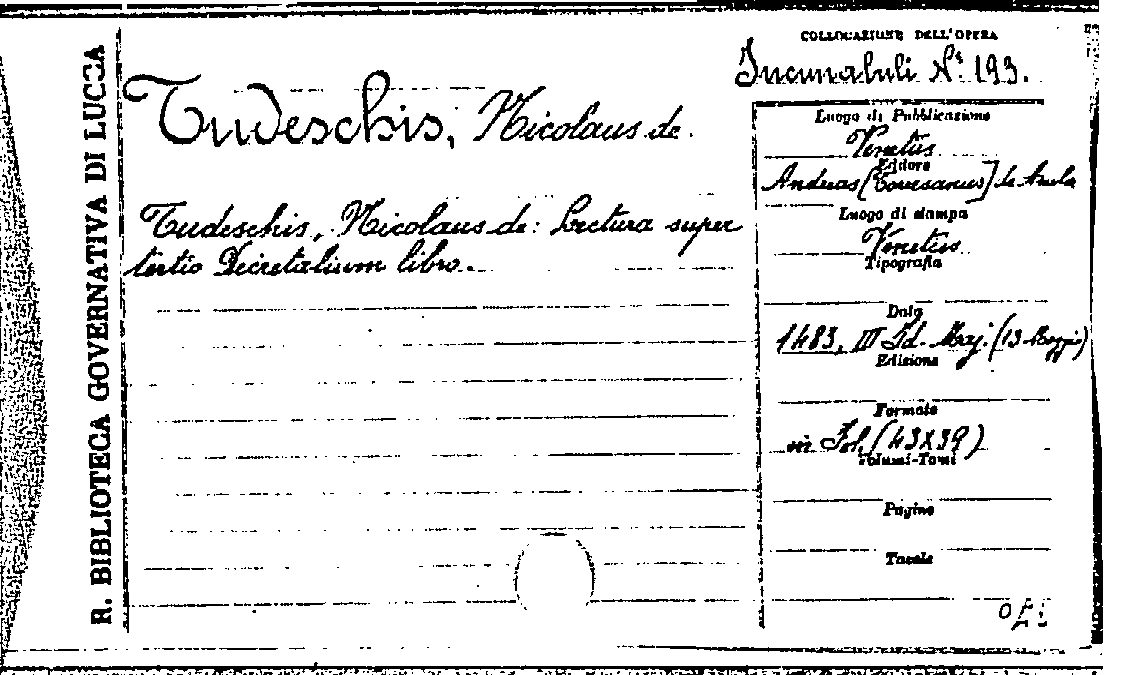 R. BIBLIOTECA GOVERNATIVA DI LUCCA
COLLOCAZIONE DELL'OPERA
Incunabuli N.º 193.
Tudeschis, Nicolaus de.
Tudeschis, Nicolaus de: Lectura super
tertio Decretalium libro.
Luogo di Pubblicazione
Venetiis
Editore
Andreas [Torresanus] de Asula
Luogo di stampa
Venetiis
Tipografia
Data
1483, III Id. Maj. (13 Maggio)
Edizione
Formato
in Fol. (43X39)
Volumi-Tomi
Pagine
Tavole